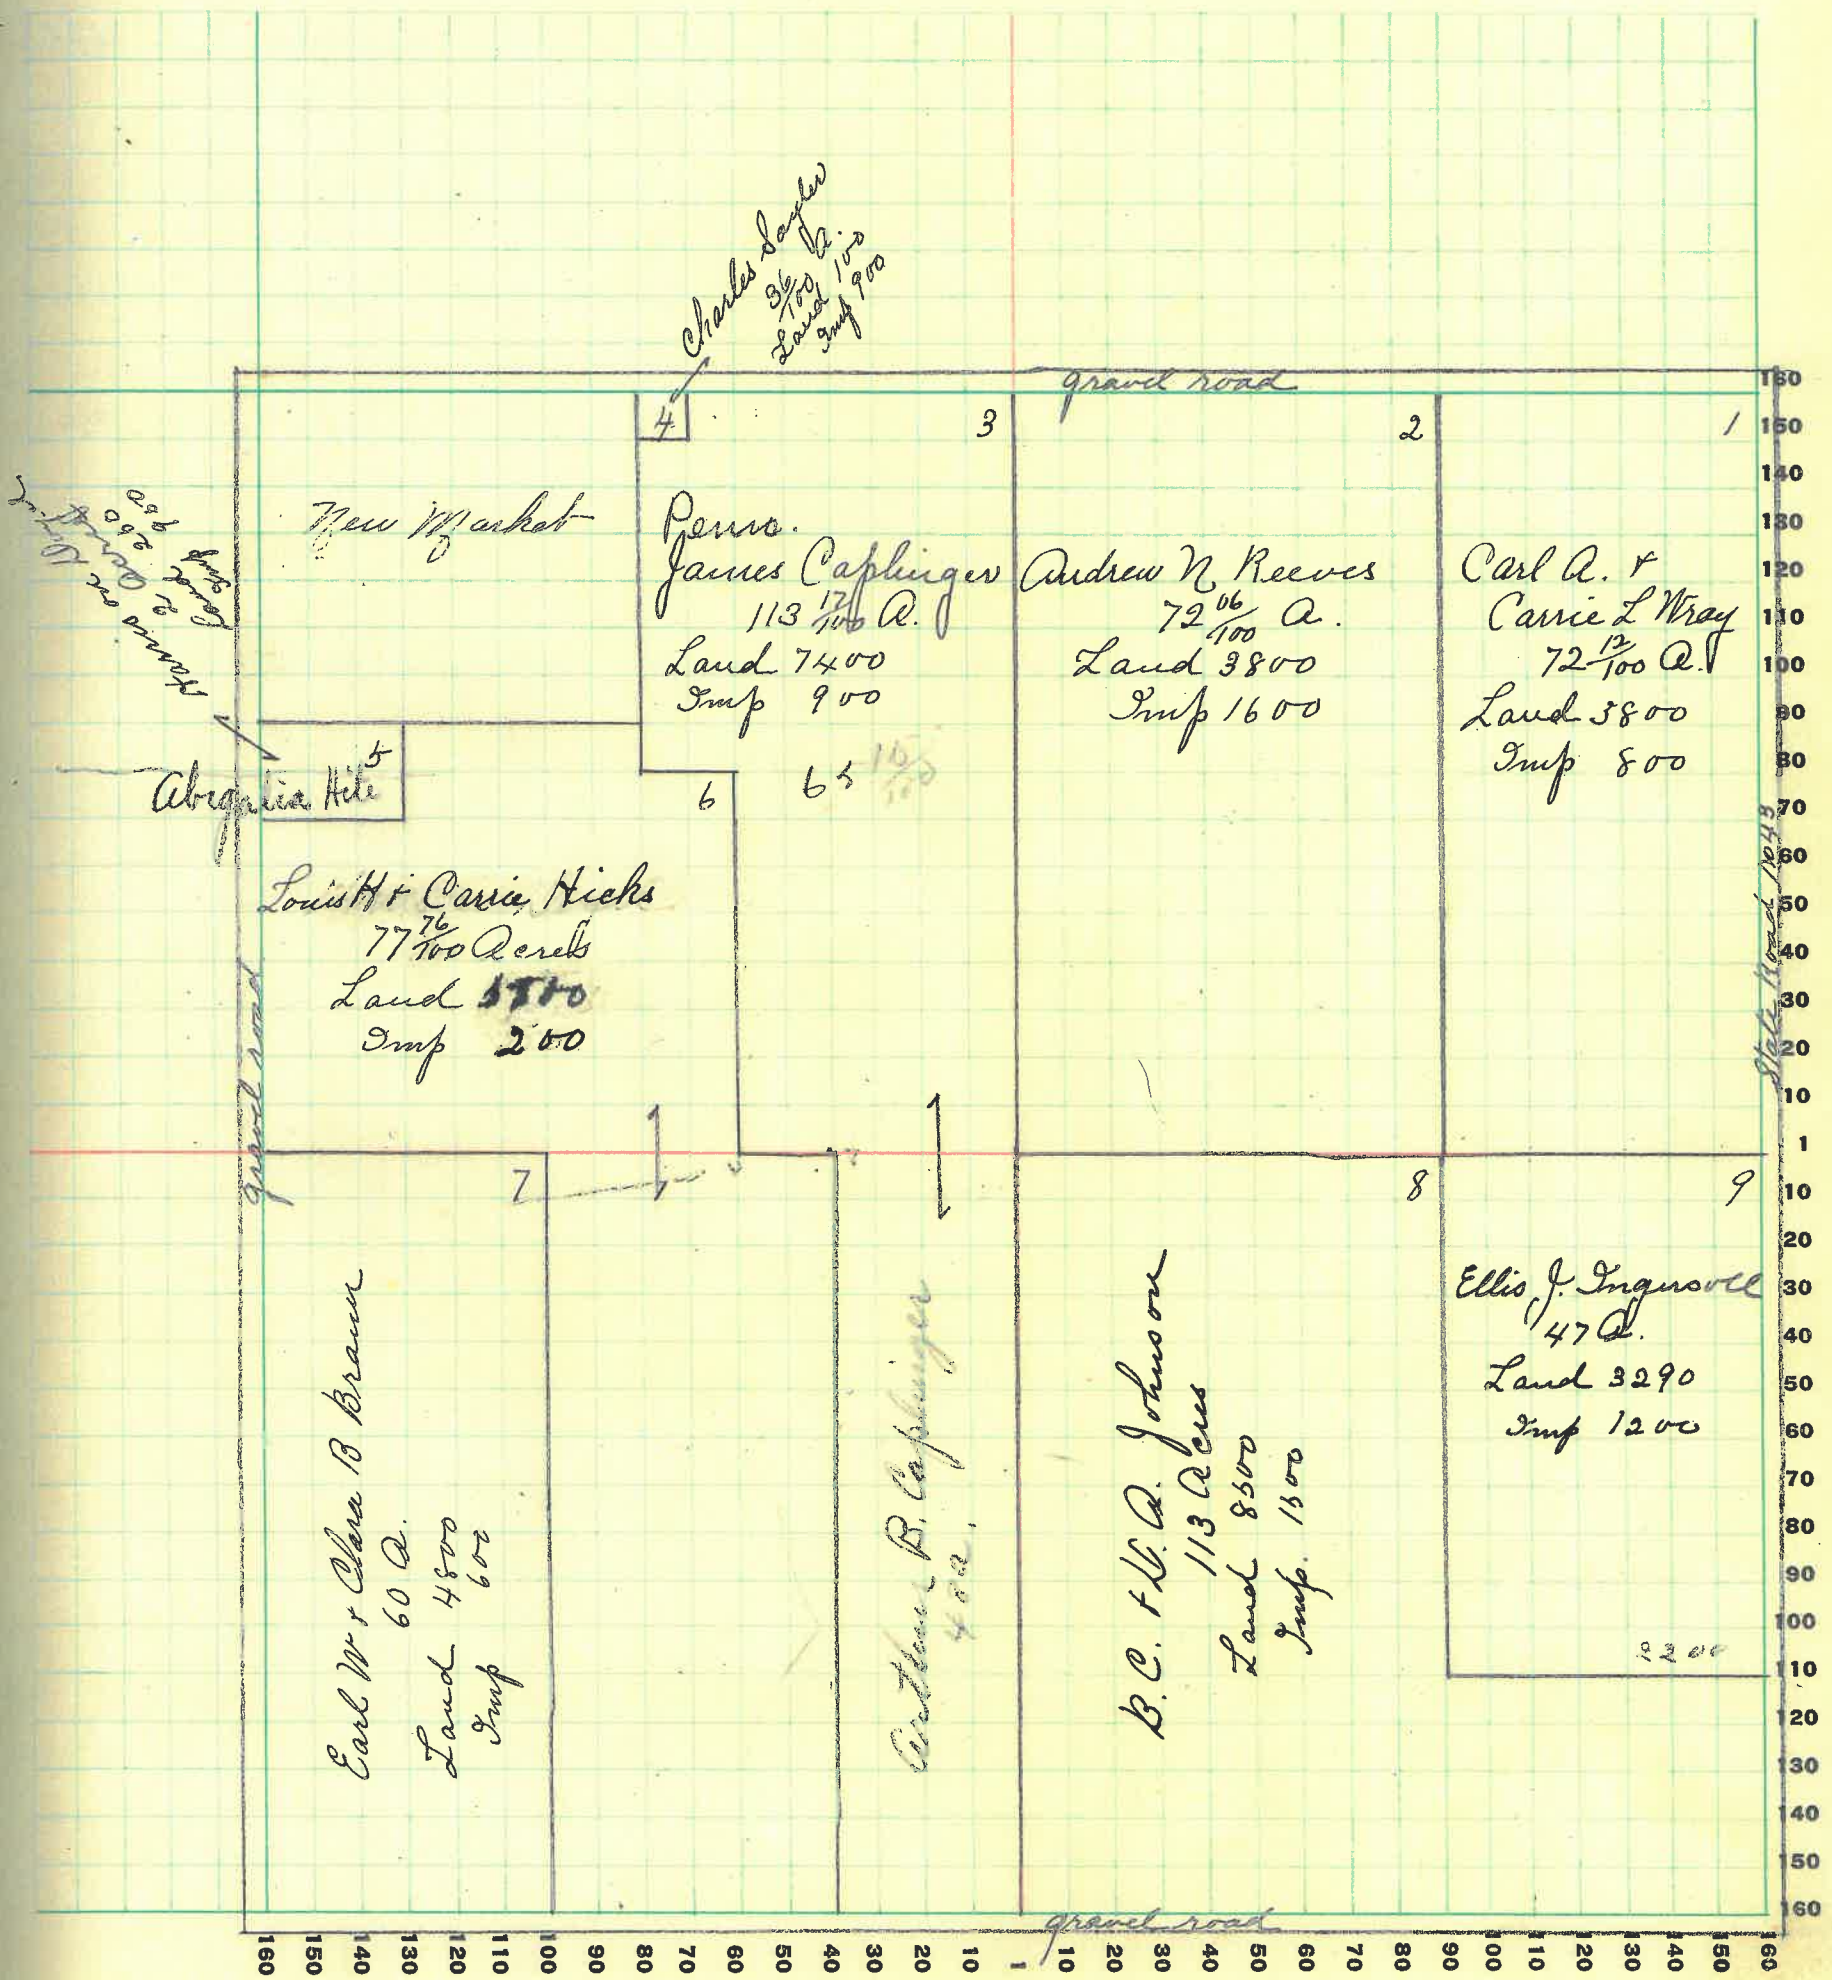 Charles Sayler
36/100 A.
Land 100
Imp 900
gravel road
4
3
2
1
New Market
Penro.
James Caplinger
113 17/100 A.
Land 7400
Imp 900
65
Andrew N. Reeves
72 06/100 A.
Land 3800
Imp 1600
Carl A. +
Carrie L Wray
72 12/100 A.
Land 3800
Imp 800
Harris on
2 Acres
Land 200
Imp 900
5
Hile
6
Louis H + Carrie Hicks
77 76/100 Acres
Land
Imp 200
gravel road
State Road
7
8
9
Earl W + Clara B Braun
60 A.
Land 4800
Imp 600
Arthur B. Caplinger
40 a.
B. C. + A. Johnson
113 Acres
Land 8500
Imp. 1500
Ellis J. Ingersoll
47 A.
Land 3290
Imp 1200
gravel road
160
150
140
130
120
110
100
90
80
70
60
50
40
30
20
10
1
10
20
30
40
50
60
70
80
90
100
110
120
130
140
150
160
160 150 140 130 120 110 100 90 80 70 60 50 40 30 20 10 1 10 20 30 40 50 60 70 80 90 100 110 120 130 140 150 160